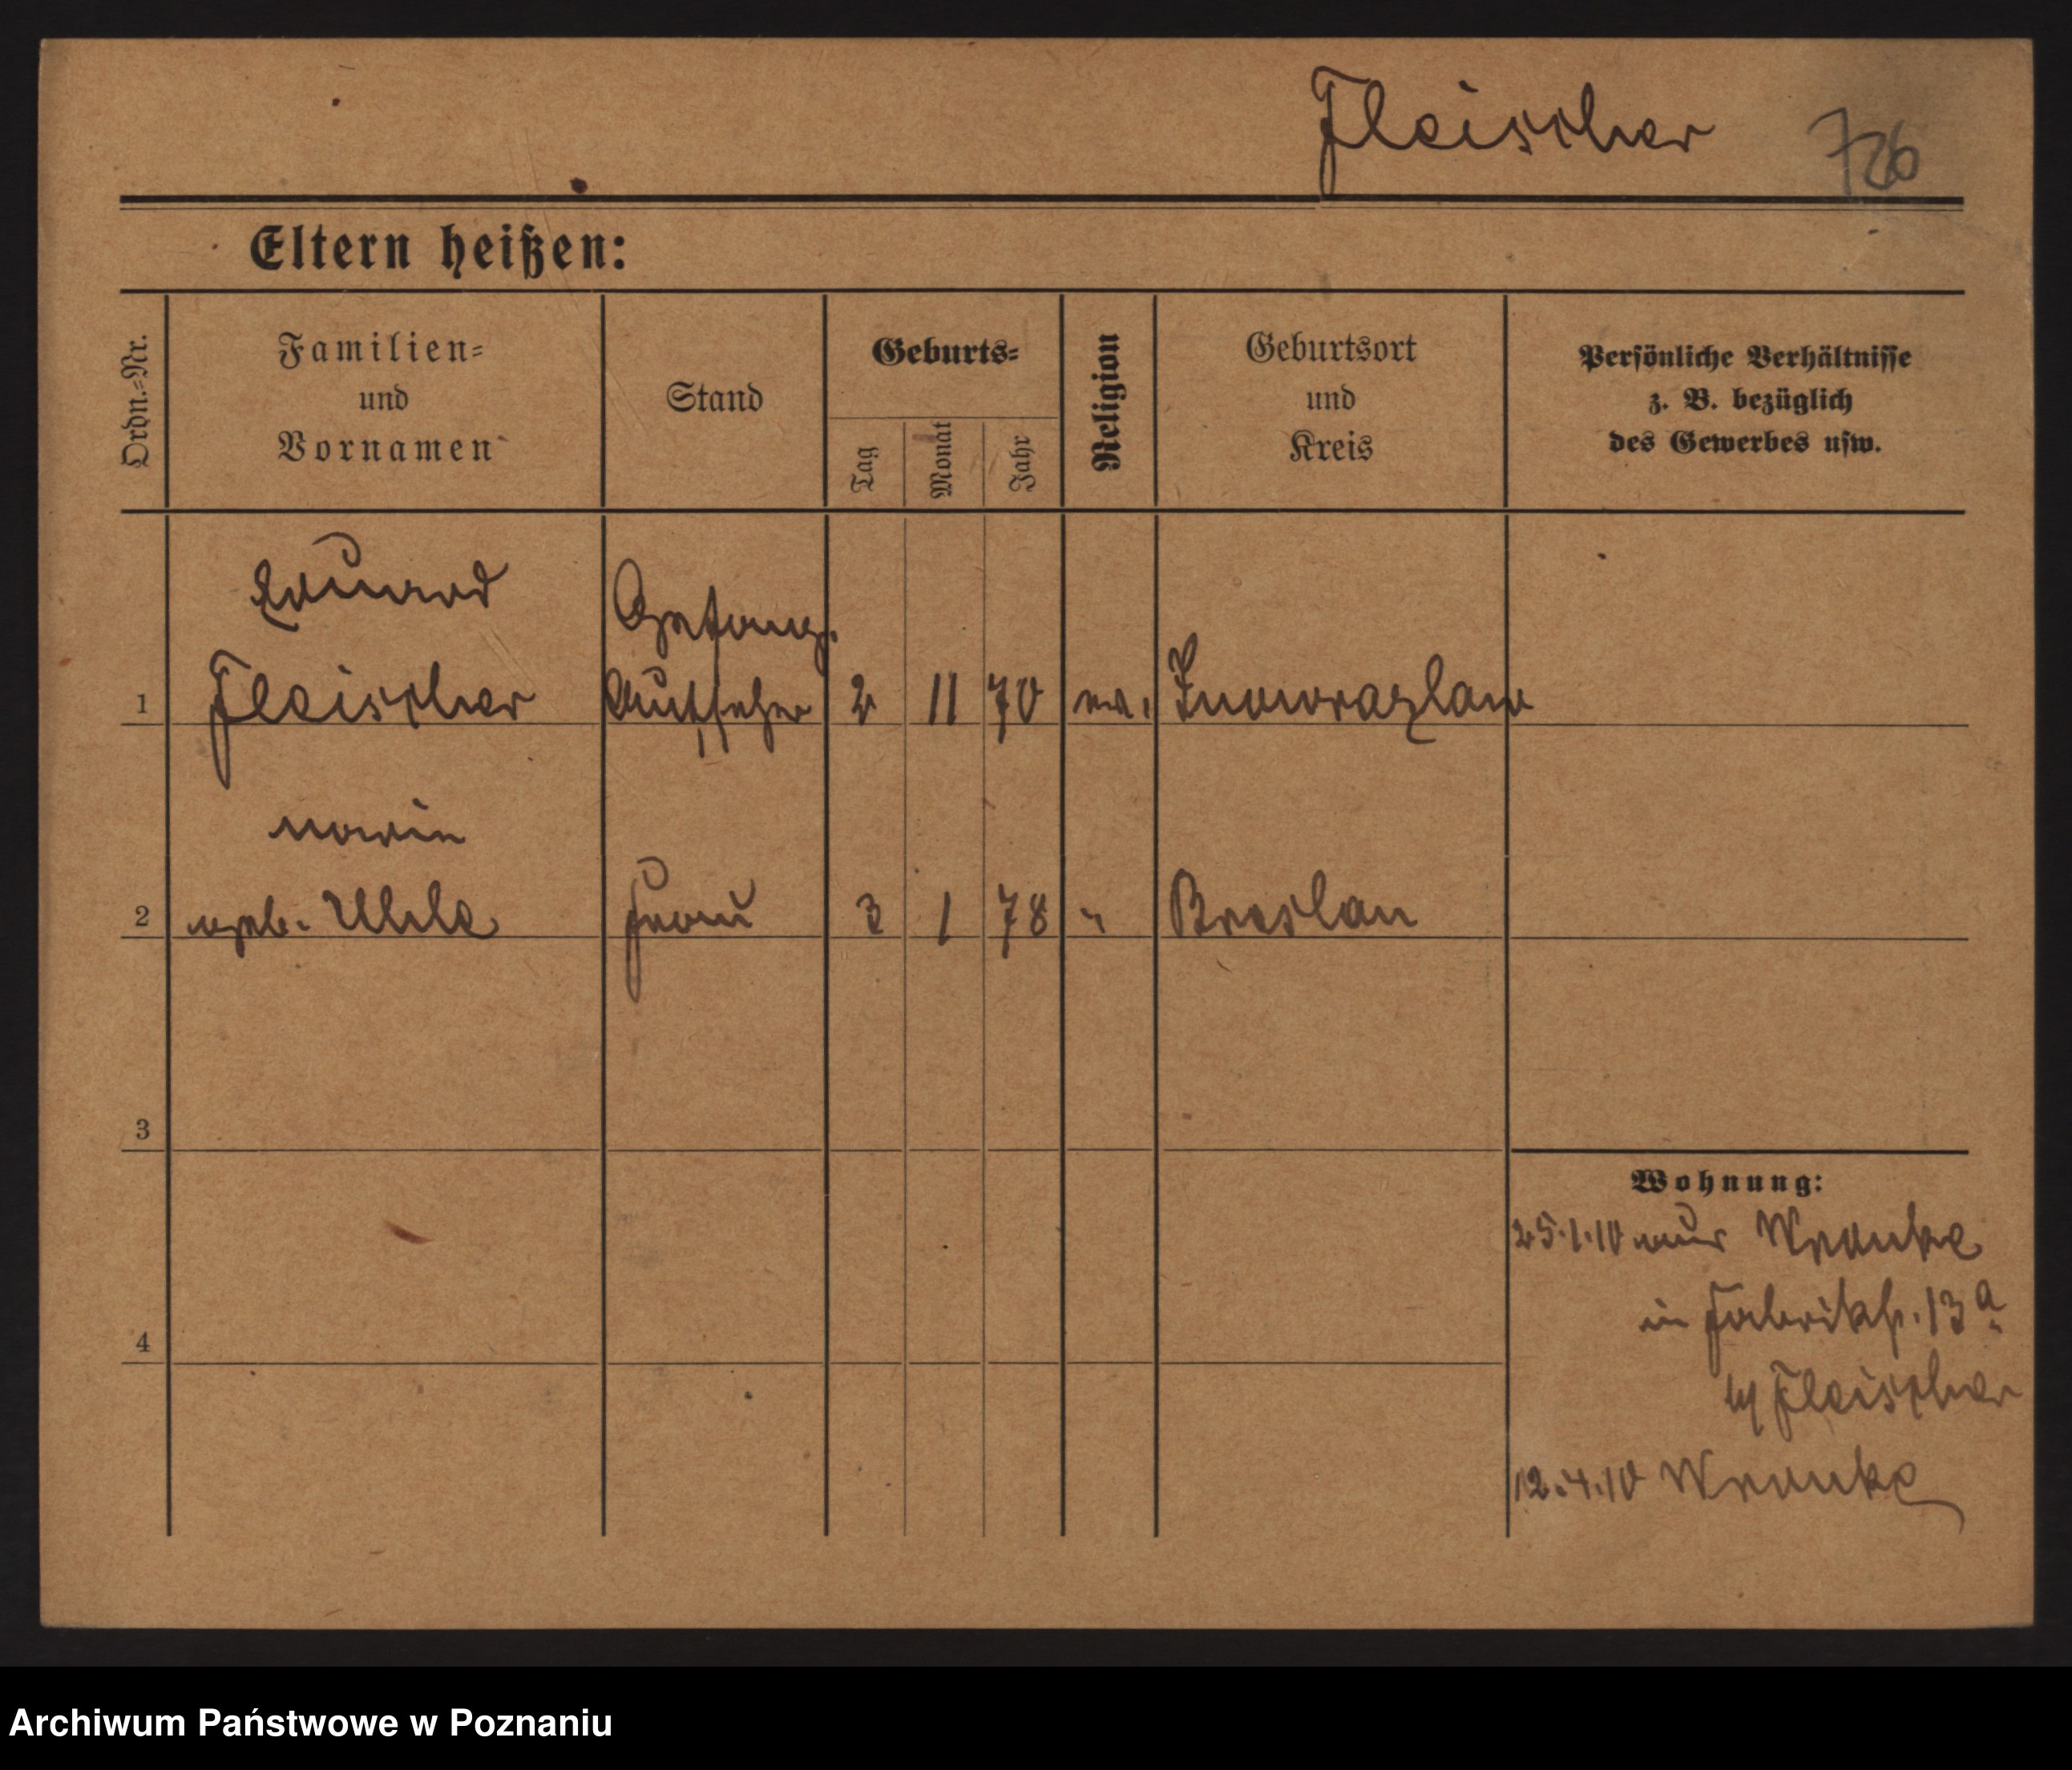 Fleischer 726
Eltern heißen:
Ordn.=Nr.
Familien=
und
Vornamen
Stand
Geburts=
Tag
Monat
Jahr
Religion
Geburtsort
und
Kreis
Persönliche Verhältnisse
z. B. bezüglich
des Gewerbes usw.
Eduard
Gefang.
1 Fleischer Aufseher 2 11 70 ev. Inowrazlaw
Maria
2 geb. Frau 3 1 78 " Breslau
3
Wohnung:
25.1.10 aus Wronke
in Fabrikstr. 13a
b/ Fleischer
4
12.4.10 Wronke
Archiwum Państwowe w Poznaniu